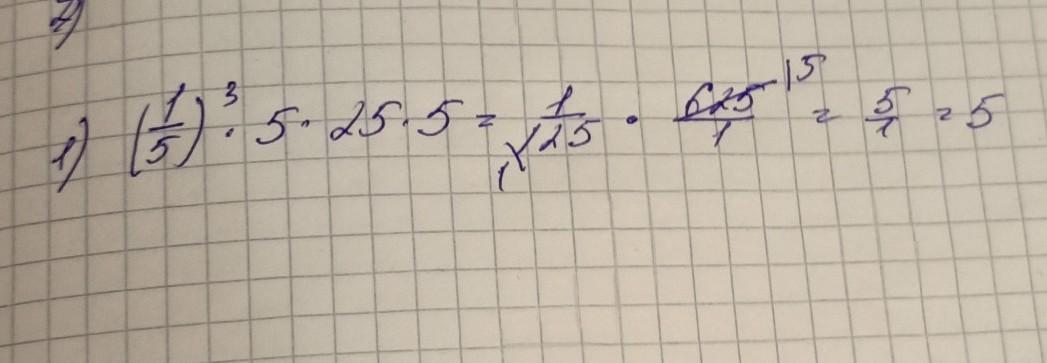 2)
1) (1/5)³ · 5 · 25 · 5 = 1/125 1 · 625/1 |5 = 5/1 = 5